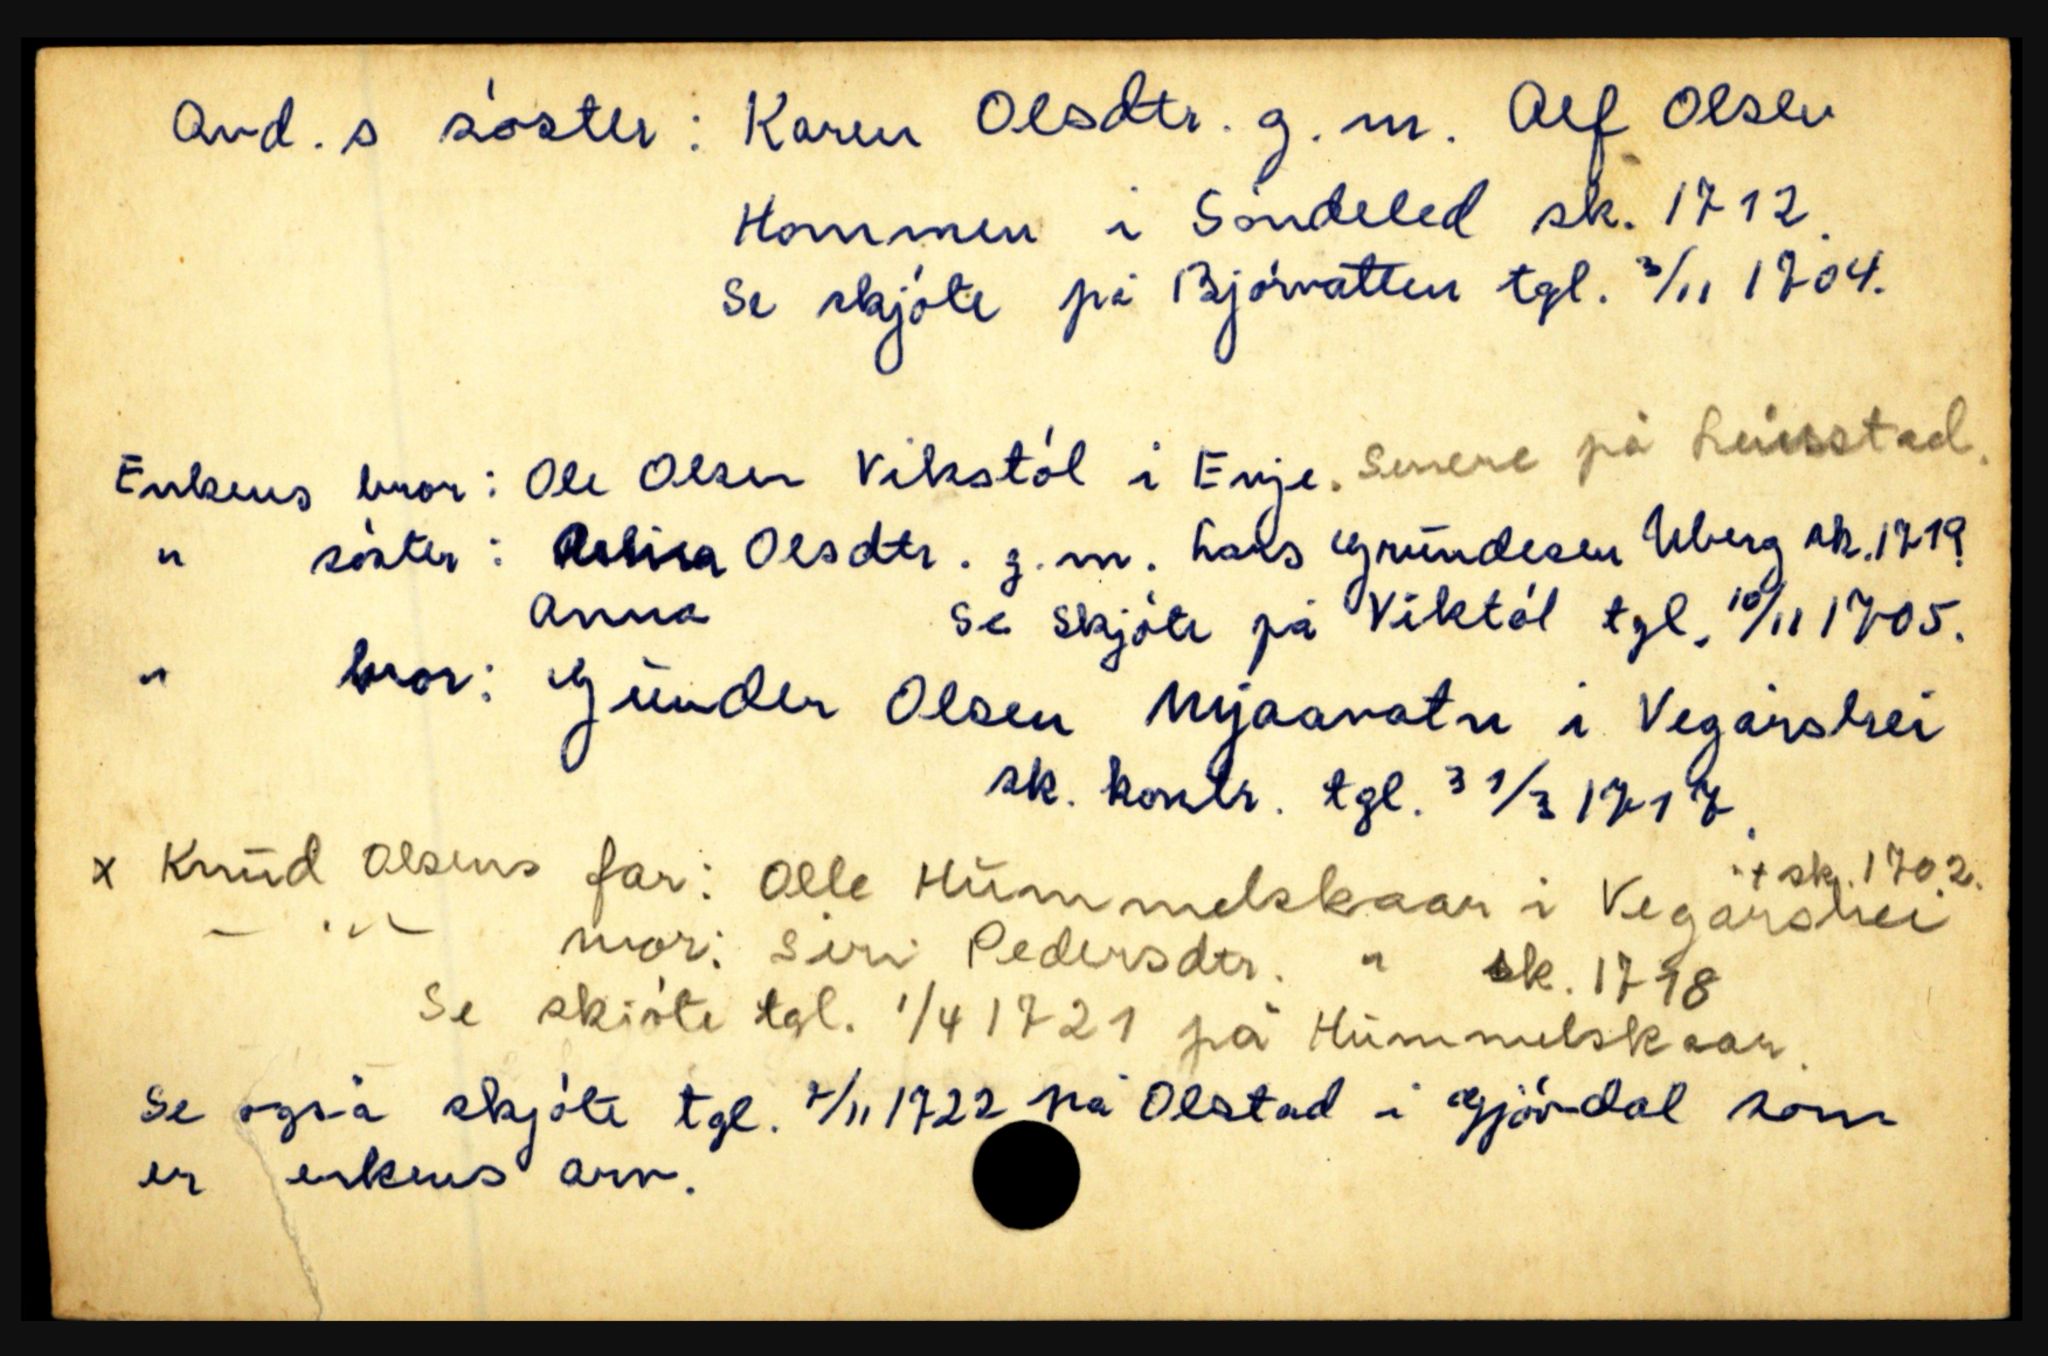 Avd.s söster: Karen Olsdtr. g.m. Alf Olsen
Hommen i Söndeled sk. 1712.
Se skjöte på Bjórvatten tgl. 3/11 1704.
Enkens bror: Ole Olsen Vikstól i Evje. Senere på
" söster: Olsdtr. g.m. Lars Gründesen Uberg sk. 1719
Anna Se Skjöte på Viktól tgl. 10/11 1705.
" bror: Günder Olsen Mjaavatn i Vegårshei
sk. kontr. tgl. 31/3 1717.
x Knüd Olsens far: Olle Hümmelskaar i Vegårshei + sk. 1702.
— " — mor: Siri Pedersdtr. " sk. 1718
Se skjöte tgl. 1/4 1721 på Hümmelskaar.
Se også skjöte tgl. 2/11 1722 på Olstad i Gjövdal som
er enkens arv.